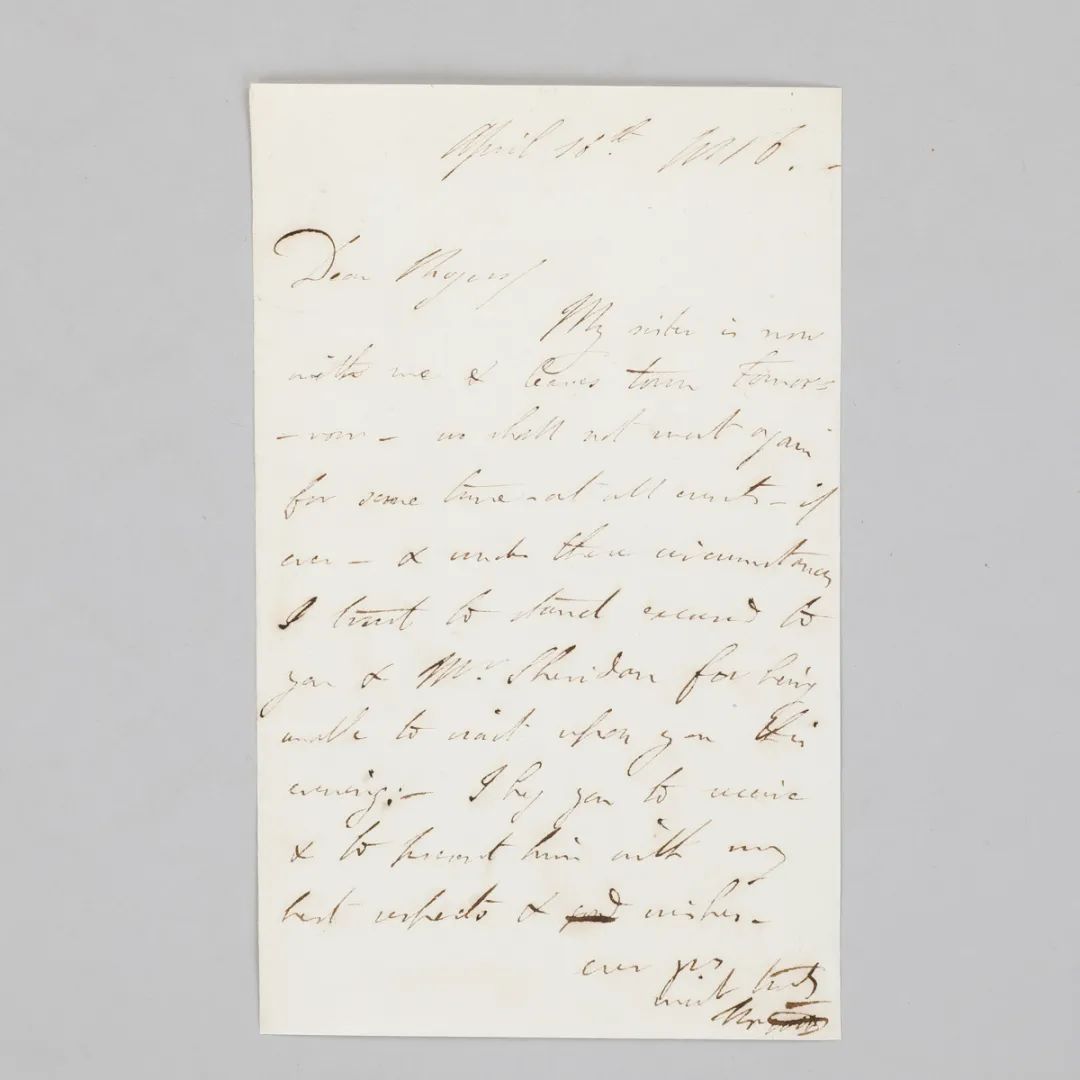 April 16th. 1816. -
Dear Rogers/
My sister is now
with me & leaves town tomor=
-row - we shall not meet again
for some time - at all events - if
ever - & under these circumstances
I trust to stand excused to
you & Mr. Sheridan for being
unable to wait upon you this
evening: - I beg you to receive
& to present him with my
best respects & wishes -
ever yrs
most truly